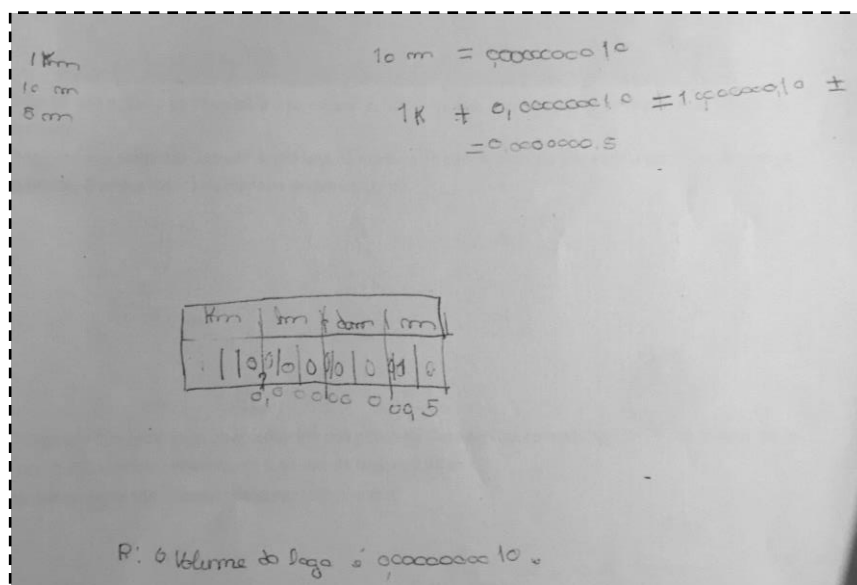 1 Km
10 m
5 m
10 m = 0,0000000010
1K + 0,000000010 = 1.0000000,10 ±
= 0,0000000.5
Km hm dam m
1 0, 0 0 0 0 0 0 1 0
0,0 0 0 0 0 0 0 0, 5
R: O Volume do lago é 0,00000000010.